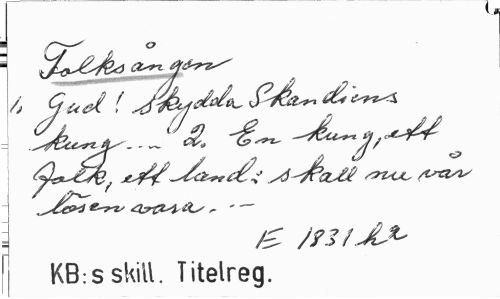 Folksången
1. Gud! skydda Skandiens
kung... 2. En kung, ett
folk, ett land: skall nu vår
lösen vara. --
E 1831 ha
KB:s skill. Titelreg.